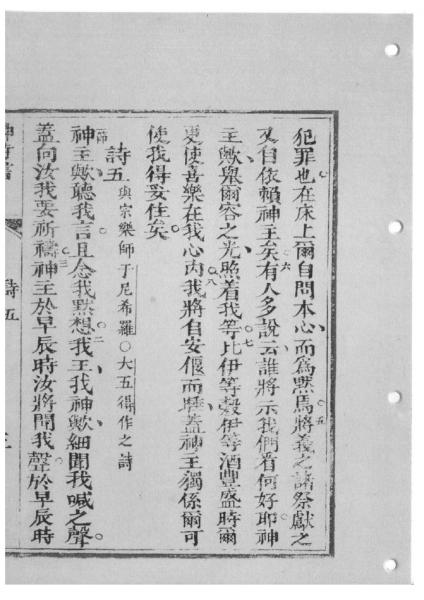 犯罪也在床上爾自問本心而為黙焉將義之諸祭獻之
五
又自依賴神主矣有人多說云誰將示我們看何好耶神
六
主歟舉爾容之光照着我等比伊等穀伊等酒豐盛時爾
七
更使喜樂在我心內我將自安偃而睡蓋神主獨係爾可
八
使我得妥住矣
詩五 與宗樂師于尼希羅○大五得作之詩
一節
神主歟聽我言且念我黙想我王我神歟細聞我喊之聲
二
蓋向汝我要祈禱神主於早辰時汝將聞我聲於早辰時
三
詩五